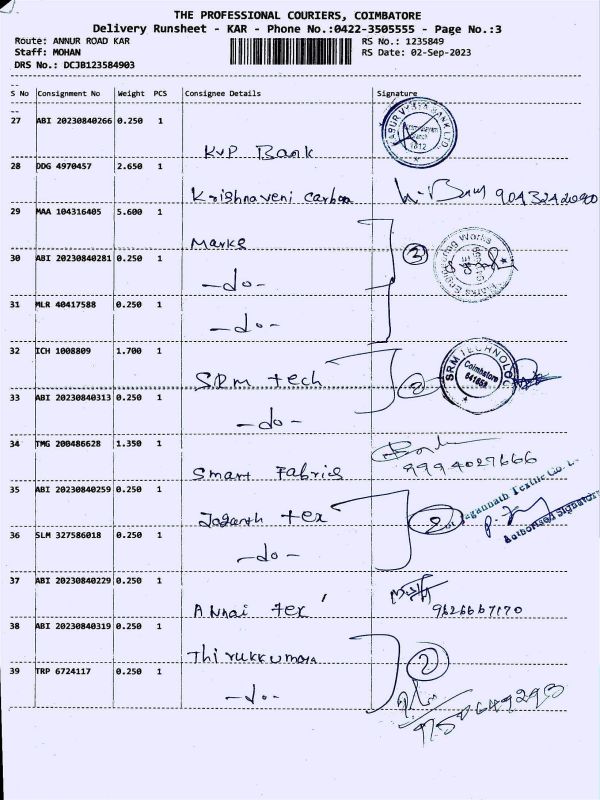 THE PROFESSIONAL COURIERS, COIMBATORE
Delivery Runsheet - KAR - Phone No.:0422-3505555 - Page No.:3
Route: ANNUR ROAD KAR RS No.: 1235849
Staff: MOHAN RS Date: 02-Sep-2023
DRS No.: DCJB123584903
S No Consignment No Weight PCS Consignee Details Signature
27 ABI 20230840266 0.250 1
KVP Bank
28 DDG 4970457 2.650 1
Krishnaveni carbon 9043242090
29 MAA 104316405 5.600 1
Marks
30 ABI 20230840281 0.250 1
-do- 3
31 MLR 40417588 0.250 1
-do-
32 ICH 1008809 1.700 1
SRM tech 2 SRM TECHNOLOG Coimbatore
33 ABI 20230840313 0.250 1
-do-
34 TMG 200486628 1.350 1
Smart Fabrics 9994027666
35 ABI 20230840259 0.250 1
Jaganth tex 2 Jagannath Textile Co. L
36 SLM 327586018 0.250 1
-do- Authorised Signatory
37 ABI 20230840229 0.250 1
Annai tex 9626667170
38 ABI 20230840319 0.250 1
Thirukkumara 2
39 TRP 6724117 0.250 1
-do-